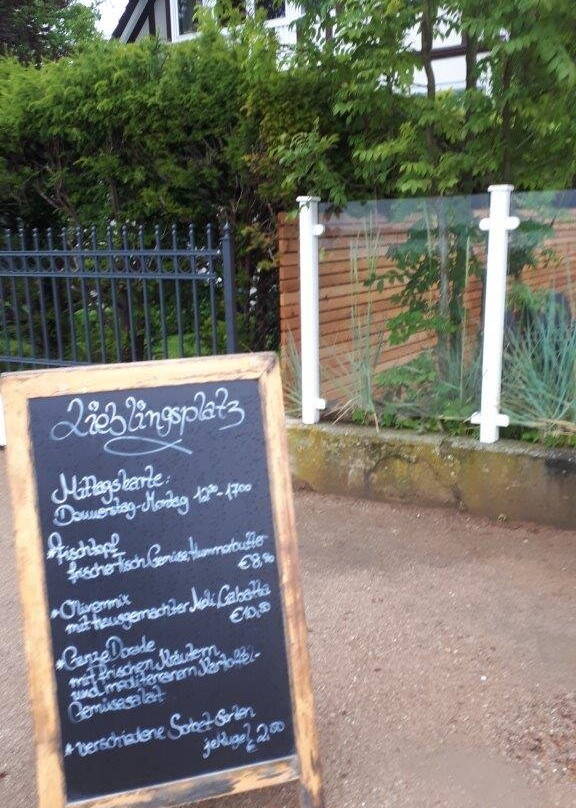 Lieblingsplatz
Mittagskarte:
Donnerstag-Montag 12⁰⁰-17⁰⁰
*Fischtopf
frischer Fisch, Gemüse, Hummerbutter
€8,90
*Olivenmix
mit hausgemachter Aioli, Ciabatta
€10,50
*Ganze Dorade
mit frischen Kräutern
und mediteranem Kartoffel-
Gemüsesalat
*verschiedene Sorbet-Sorten
je Kugel 2,00